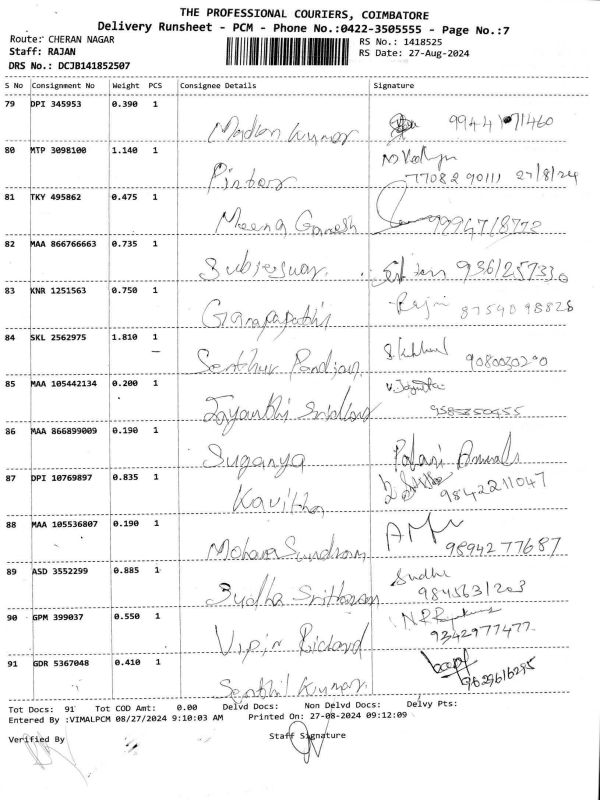 THE PROFESSIONAL COURIERS, COIMBATORE
Delivery Runsheet - PCM - Phone No.:0422-3505555 - Page No.:7
Route: CHERAN NAGAR RS No.: 1418525
Staff: RAJAN RS Date: 27-Aug-2024
DRS No.: DCJB141852507
S No Consignment No Weight PCS Consignee Details Signature
79 DPI 345953 0.390 1
Madan Kumar
80 MTP 3098100 1.140 1
77082 90111 27/8/24
81 TKY 495862 0.475 1
Meena Ganesh
82 MAA 866766663 0.735 1
83 KNR 1251563 0.750 1
Ganapapathi 87540 98828
84 SKL 2562975 1.810 1
Senthur Pandian
85 MAA 105442134 0.200 1
Jayanthi Sridhar
86 MAA 866899009 0.190 1
Suganya
87 DPI 10769897 0.835 1
Kavitha 98422 11047
88 MAA 105536807 0.190 1
Mohana Sundram 98942 77687
89 ASD 3552299 0.885 1
Sudha Sritharan Sudha
90 GPM 399037 0.550 1
Vipin Richard 9342977477
91 GDR 5367048 0.410 1
Senthil Kumar
Tot Docs: 91 Tot COD Amt: 0.00 Delvd Docs: Non Delvd Docs: Delvy Pts:
Entered By :VIMALPCM 08/27/2024 9:10:03 AM Printed On: 27-08-2024 09:12:09
Verified By Staff Signature